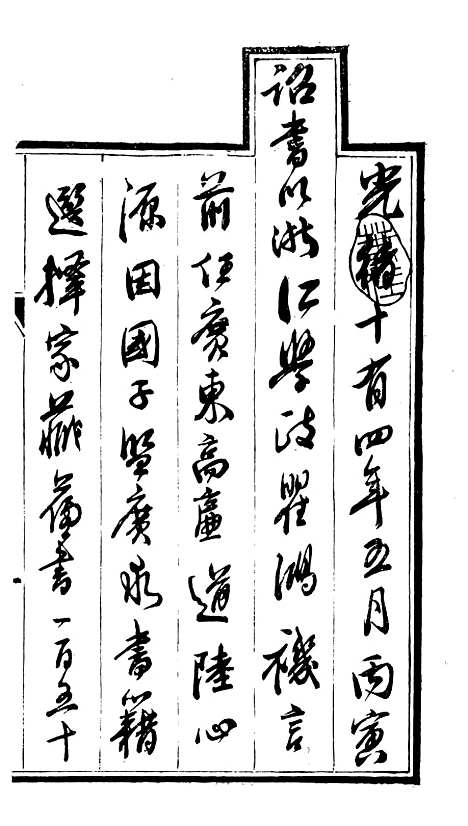 光緒十有四年五月丙寅
詔書以浙江學政瞿鴻禨言
前任廣東高廉道陸心
源因國子監廣求書籍
選擇家藏舊書一百五十